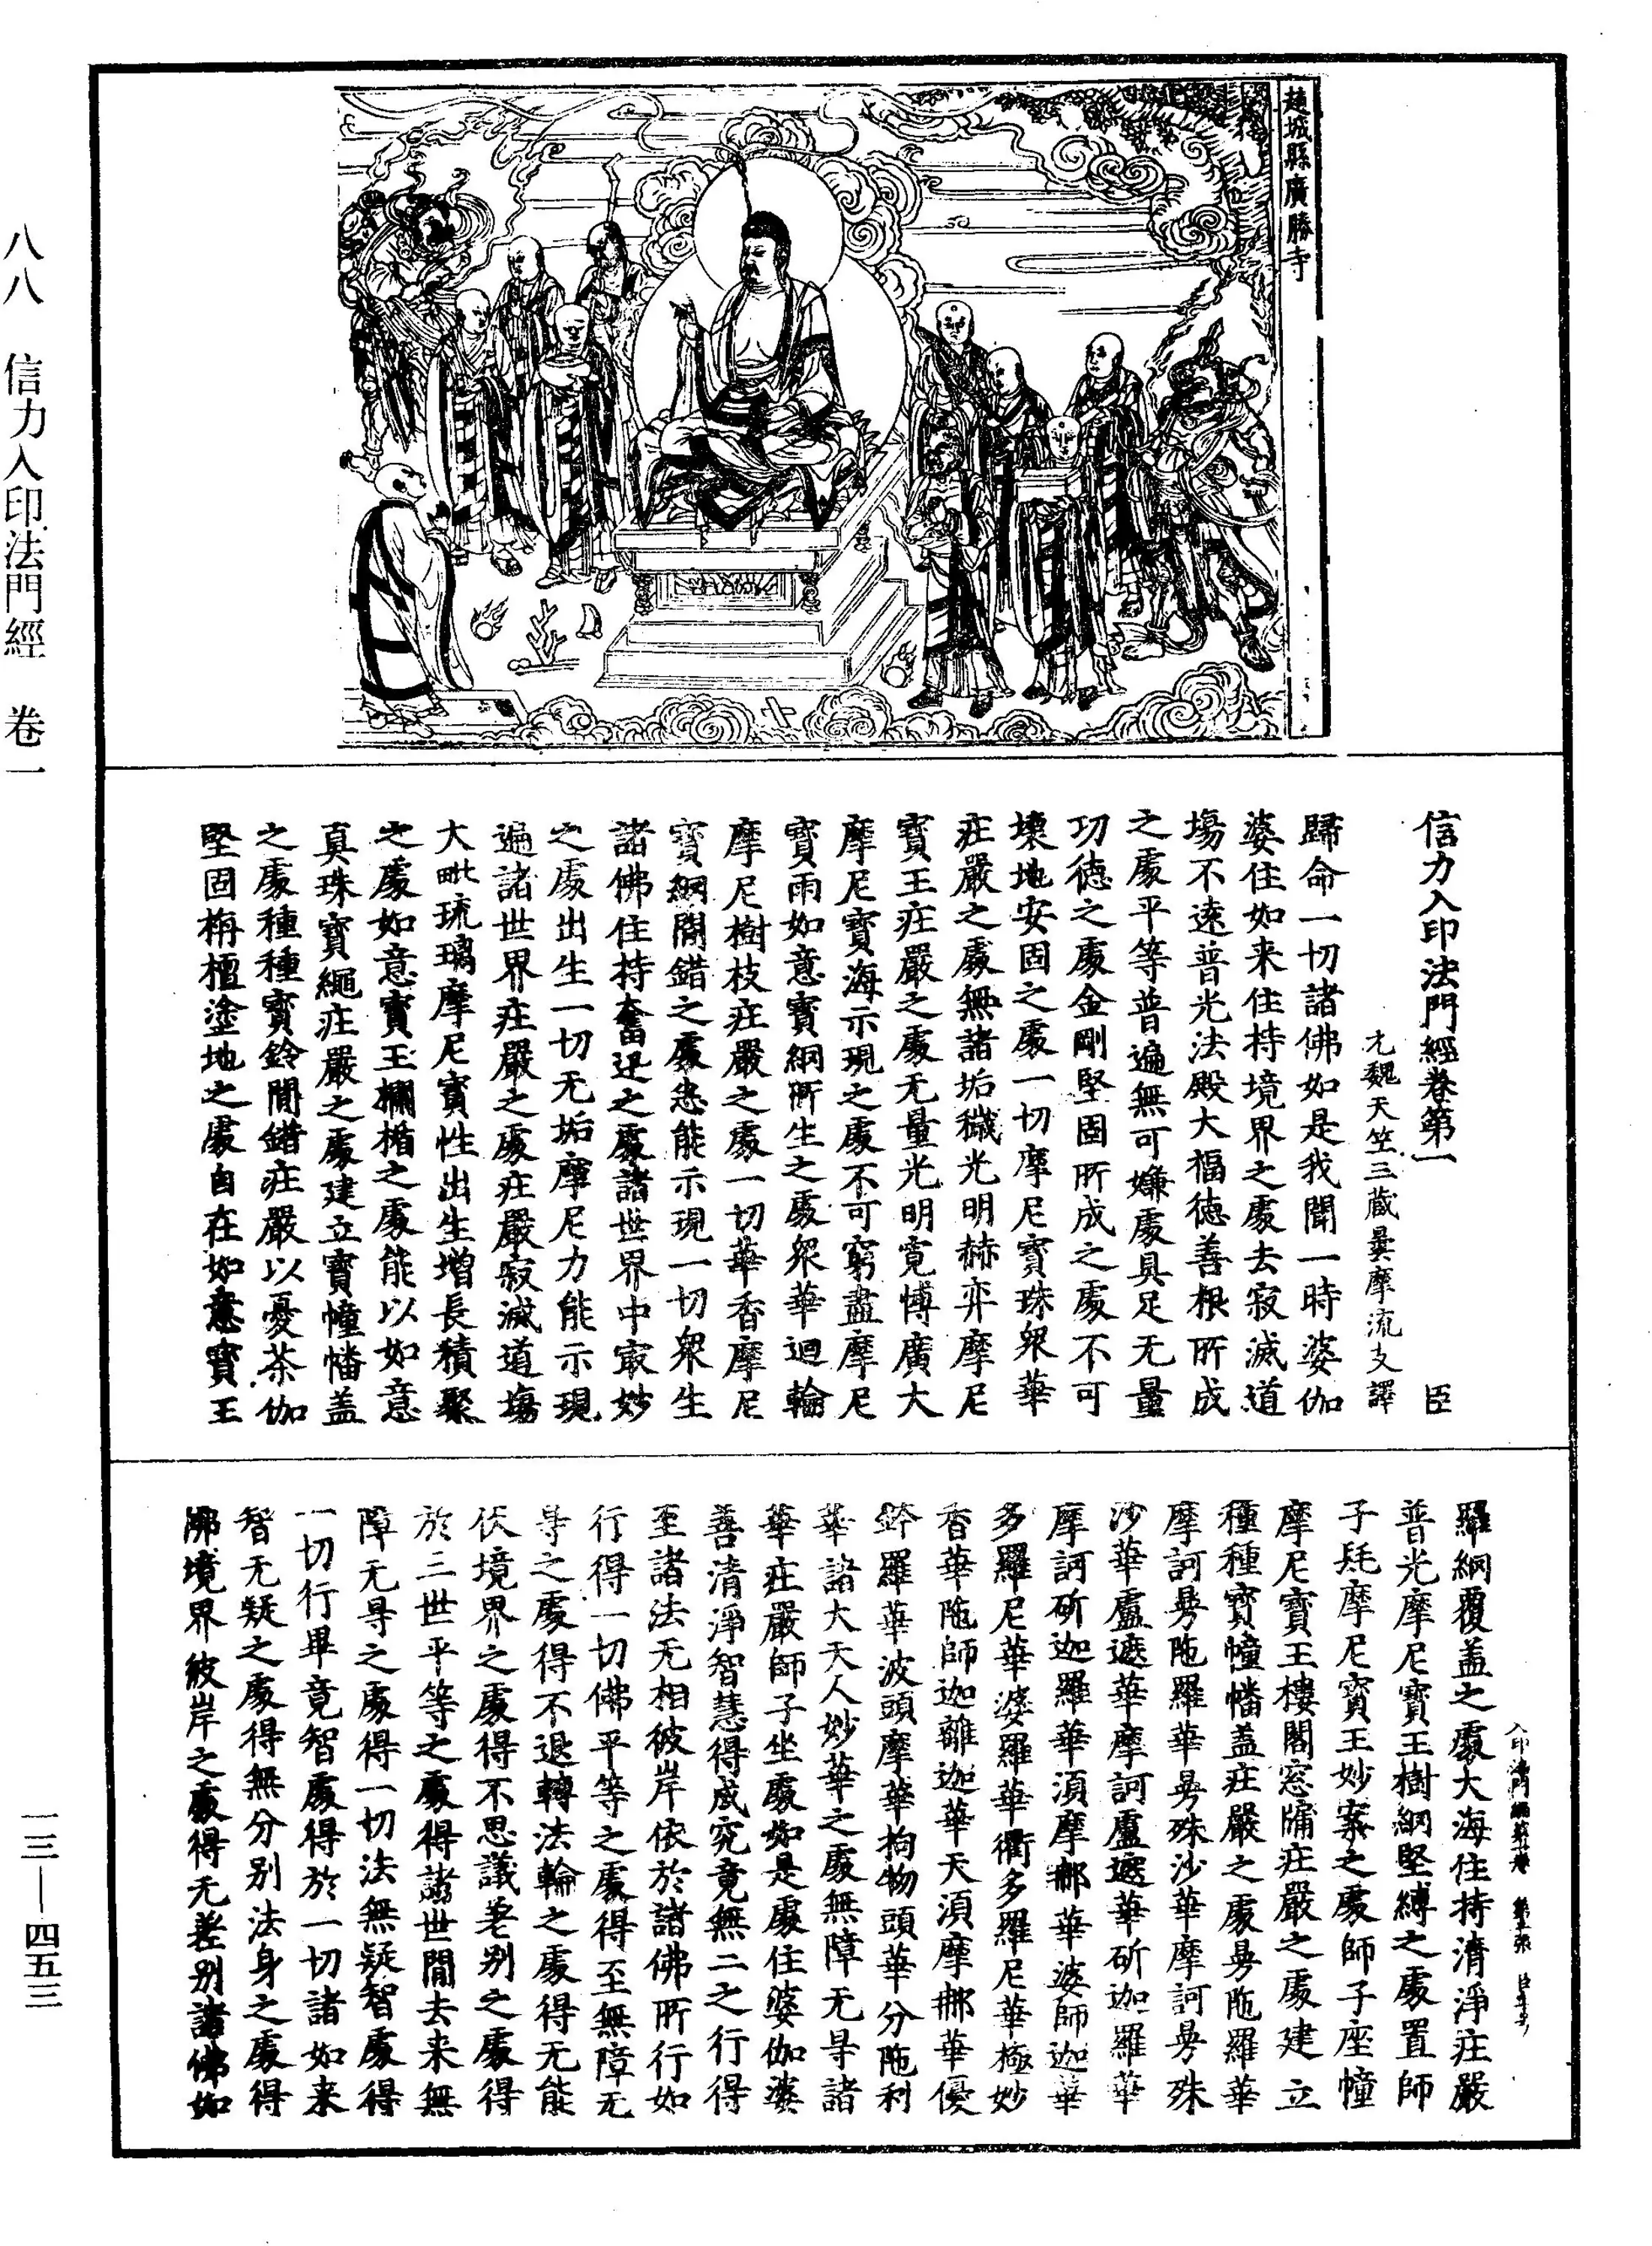 趙城縣廣勝寺
信力入印法門經卷第一 臣
元魏天竺三藏曇摩流支譯
歸命一切諸佛如是我聞一時婆伽
婆住如来住持境界之處去寂滅道
場不遠普光法殿大福德善根所成
之處平等普遍無可嫌處具足无量
功德之處金剛堅固所成之處不可
壞地安固之處一切摩尼寶珠衆華
莊嚴之處無諸垢穢光明赫弈摩尼
寶王莊嚴之處无量光明寬愽廣大
摩尼寶海示現之處不可窮盡摩尼
寶雨如意寶網所生之處衆華迴輪
摩尼樹枝莊嚴之處一切華香摩尼
寶網閒錯之處悉能示現一切衆生
諸佛住持奮迅之處諸世界中㝡妙
之處出生一切无垢摩尼力能示現
遍諸世界莊嚴之處莊嚴寂滅道塲
大毗琉璃摩尼寶性出生增長積聚
之處如意寶王欄楯之處能以如意
真珠寶繩莊嚴之處建立寶幢幡盖
之處種種寶鈴閒錯莊嚴以憂荼伽
堅固栴檀塗地之處自在如意寶王
羅網覆盖之處大海住持清淨莊嚴
普光摩尼寶王樹網堅縛之處置師
子髦摩尼寶王妙案之處師子座幢
摩尼寶王樓閣窓牖莊嚴之處建立
種種寶幢幡盖莊嚴之處㝵陁羅華
摩訶㝵陁羅華㝵殊沙華摩訶㝵殊
沙華盧遮華摩訶盧遮華斫迦羅華
摩訶斫迦羅華湏摩那華婆師迦華
多羅尼華婆羅華衢多羅尼華極妙
香華陁師迦離迦華天湏摩那華優
鉢羅華波頭摩華拘物頭華分陁利
華諸大天人妙華之處無障无㝵諸
華莊嚴師子坐處如是處住婆伽婆
善清淨智慧得成究竟無二之行得
至諸法无相彼岸依於諸佛所行如
行得一切佛平等之處得至無障无
㝵之處得不退轉法輪之處得无能
伏境界之處得不思議差别之處得
於三世平等之處得諸世閒去来無
障无㝵之處得一切法無疑智處得
一切行畢竟智處得於一切諸如来
智无疑之處得無分别法身之處得
佛境界彼岸之處得无差别諸佛如
八八 信力入印法門經 卷一
一三—四五三